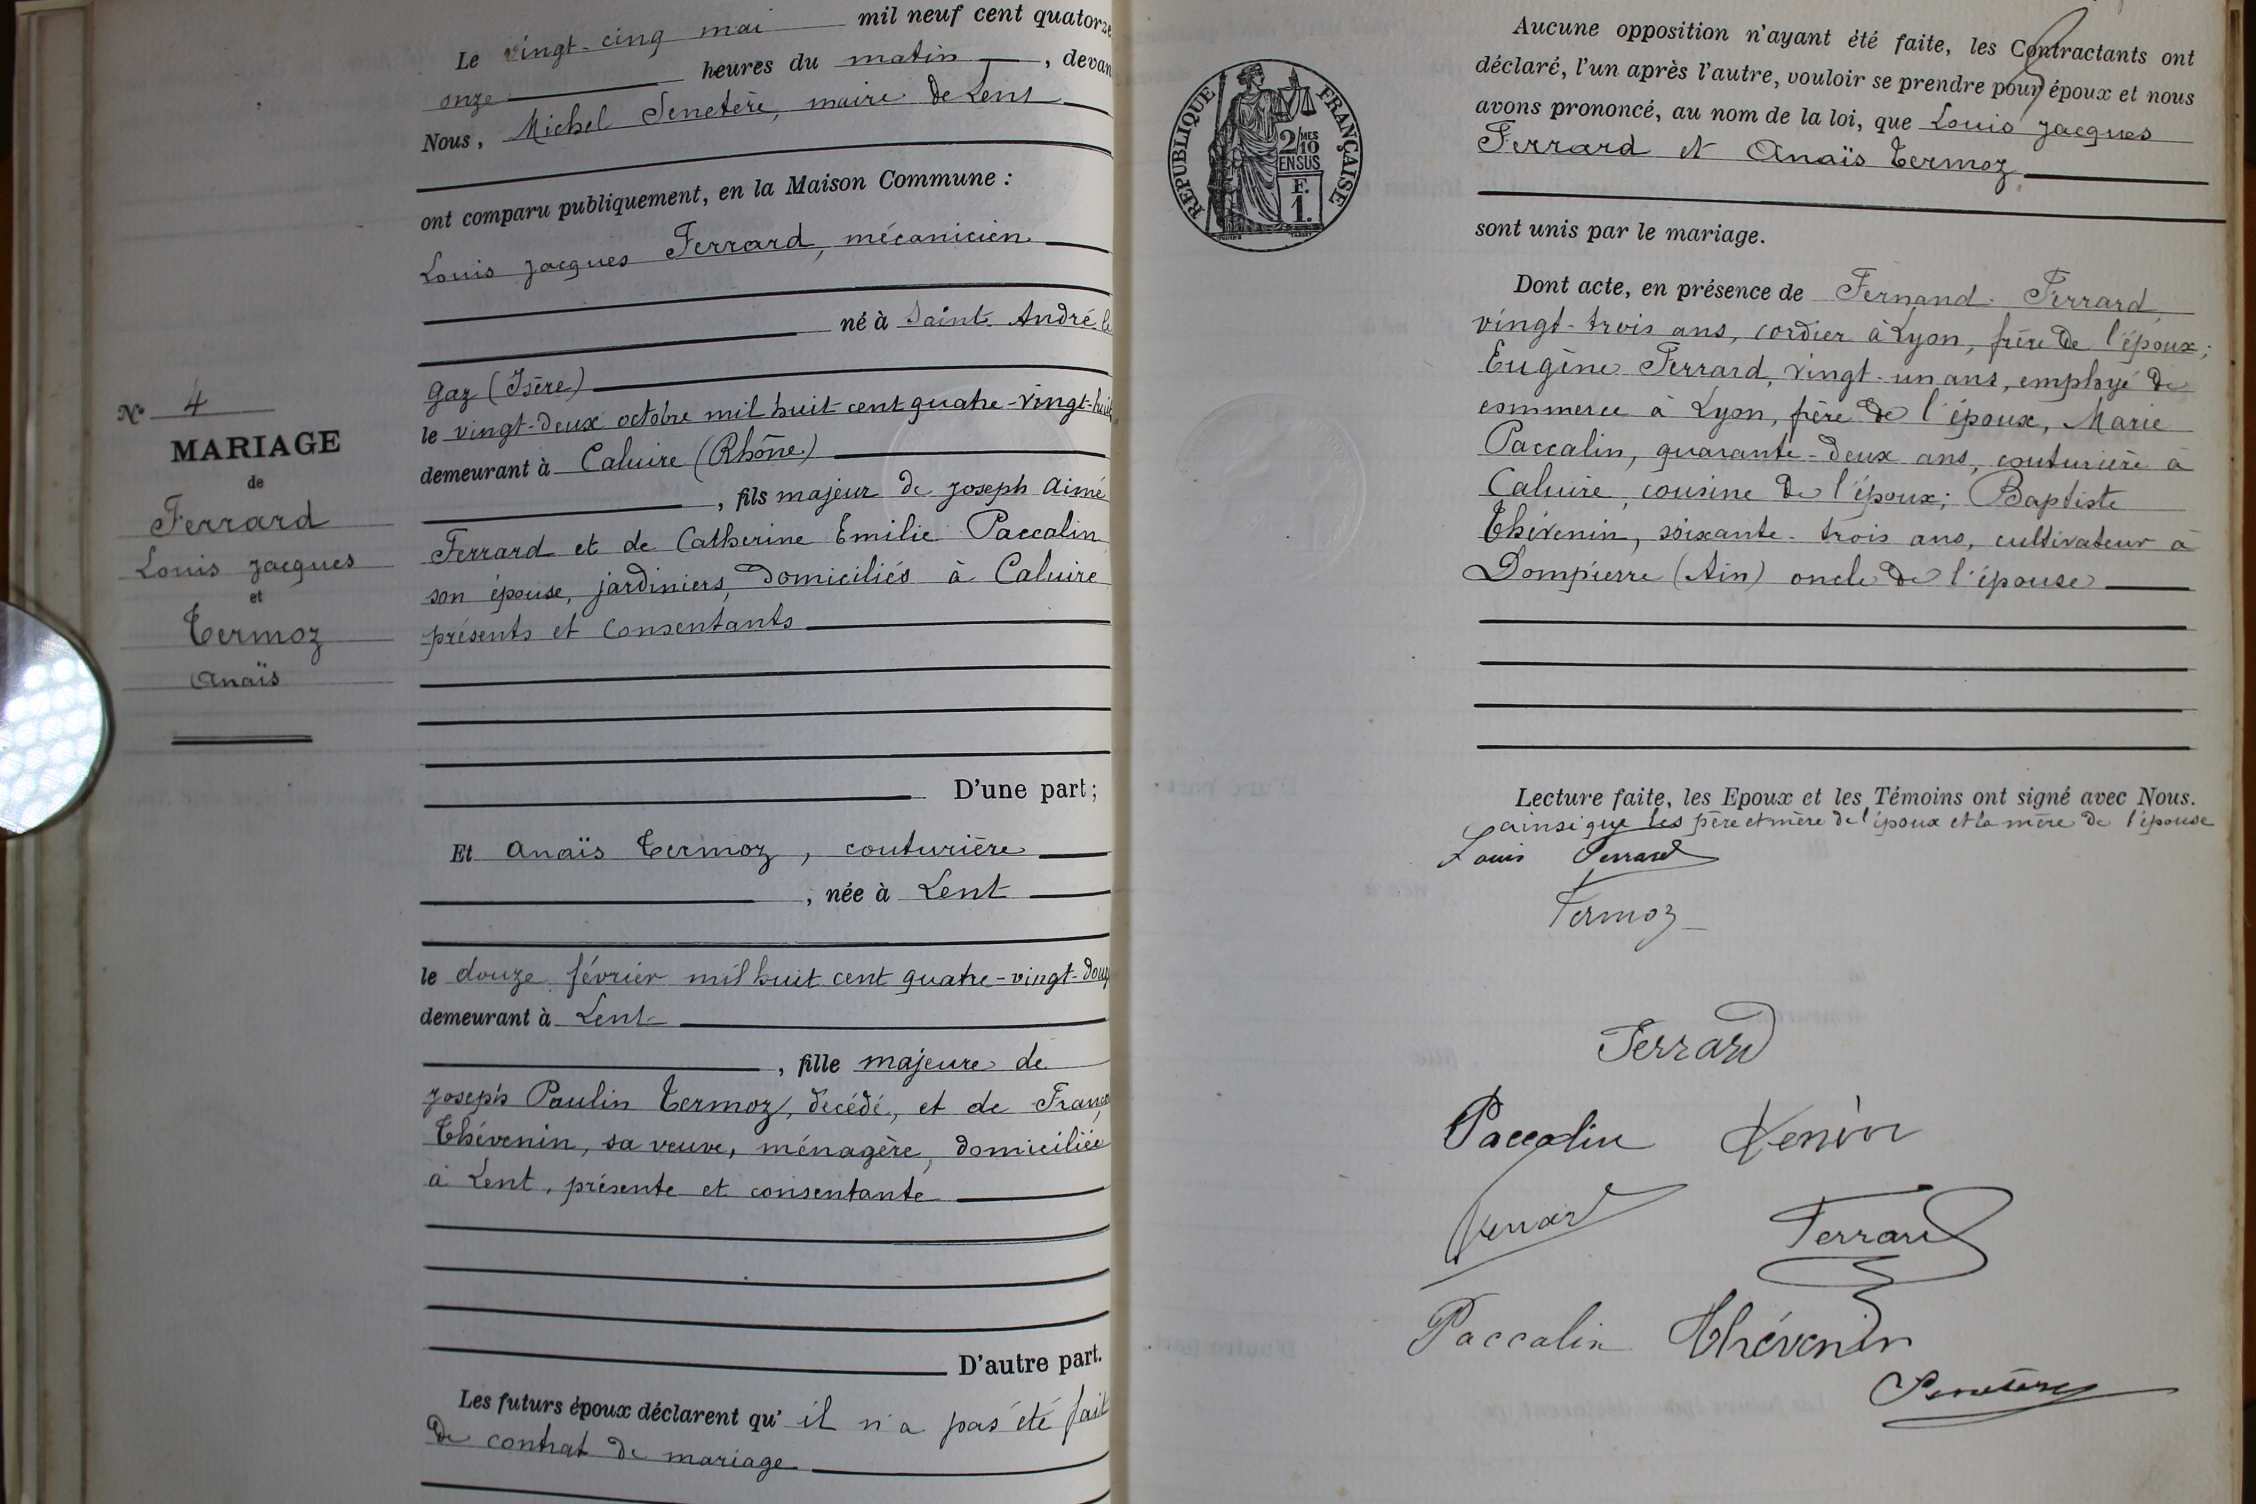 Le vingt-cinq mai mil neuf cent quatorze
onze heures du matin, devan
Nous, Michel Senetère, maire de Lent
ont comparu publiquement, en la Maison Commune :
Louis Jacques Ferrard, mécanicien
né à Saint André le
Gaz (Isère)
le vingt-deux octobre mil huit cent quatre-vingt-huit
demeurant à Caluire (Rhône)
, fils majeur de Joseph Aimé
Ferrard et de Catherine Emilie Paccalin
son épouse, jardiniers, domiciliés à Caluire
présents et consentants
D'une part;
Et Anaïs Termoz, couturière
, née à Lent
le douze février mil huit cent quatre-vingt-douz
demeurant à Lent
, fille majeure de
Joseph Paulin Termoz, décédé, et de Franç
Thévenin, sa veuve, ménagère, domiciliée
à Lent, présente et consentante
D'autre part.
Les futurs époux déclarent qu' il n'a pas été fait
de contrat de mariage
N° 4
MARIAGE
de
Ferrard
Louis Jacques
et
Termoz
Anaïs
REPUBLIQUE FRANÇAISE
2/10 MES
EN SUS
F.
1.
Aucune opposition n'ayant été faite, les Contractants ont
déclaré, l'un après l'autre, vouloir se prendre pour époux et nous
avons prononcé, au nom de la loi, que Louis Jacques
Ferrard et Anaïs Termoz
sont unis par le mariage.
Dont acte, en présence de Fernand Ferrard
vingt-trois ans, cordier à Lyon, frère de l'époux;
Eugène Ferrard, vingt-un ans, employé de
commerce à Lyon, frère de l'époux, Marie
Paccalin, quarante-deux ans, couturière à
Caluire, cousine de l'époux; Baptiste
Thévenin, soixante-trois ans, cultivateur à
Dompierre (Ain) oncle de l'épouse
Lecture faite, les Epoux et les Témoins ont signé avec Nous.
ainsi que les père et mère de l'époux et la mère de l'épouse
Louis Ferrard
Termoz
Ferrard
Paccalin
Ferrard
Paccalin Thévenin
Senetère